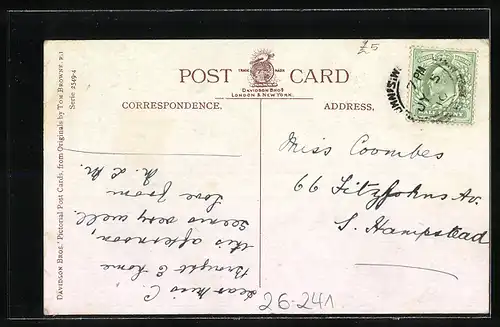 £5
POST CARD
TRADE MARK
DAVIDSON BROS
LONDON & NEW YORK.
CORRESPONDENCE.
ADDRESS,
Dear Miss C.
Brought E home
this afternoon,
seems very well.
Love from
Miss Coombes
66 Fitzjohns Av.
S. Hampstead
DAVIDSON BROS.' Pictorial Post Cards, from Originals by TOM BROWNE, R.I
Serie 2549-4
26-241